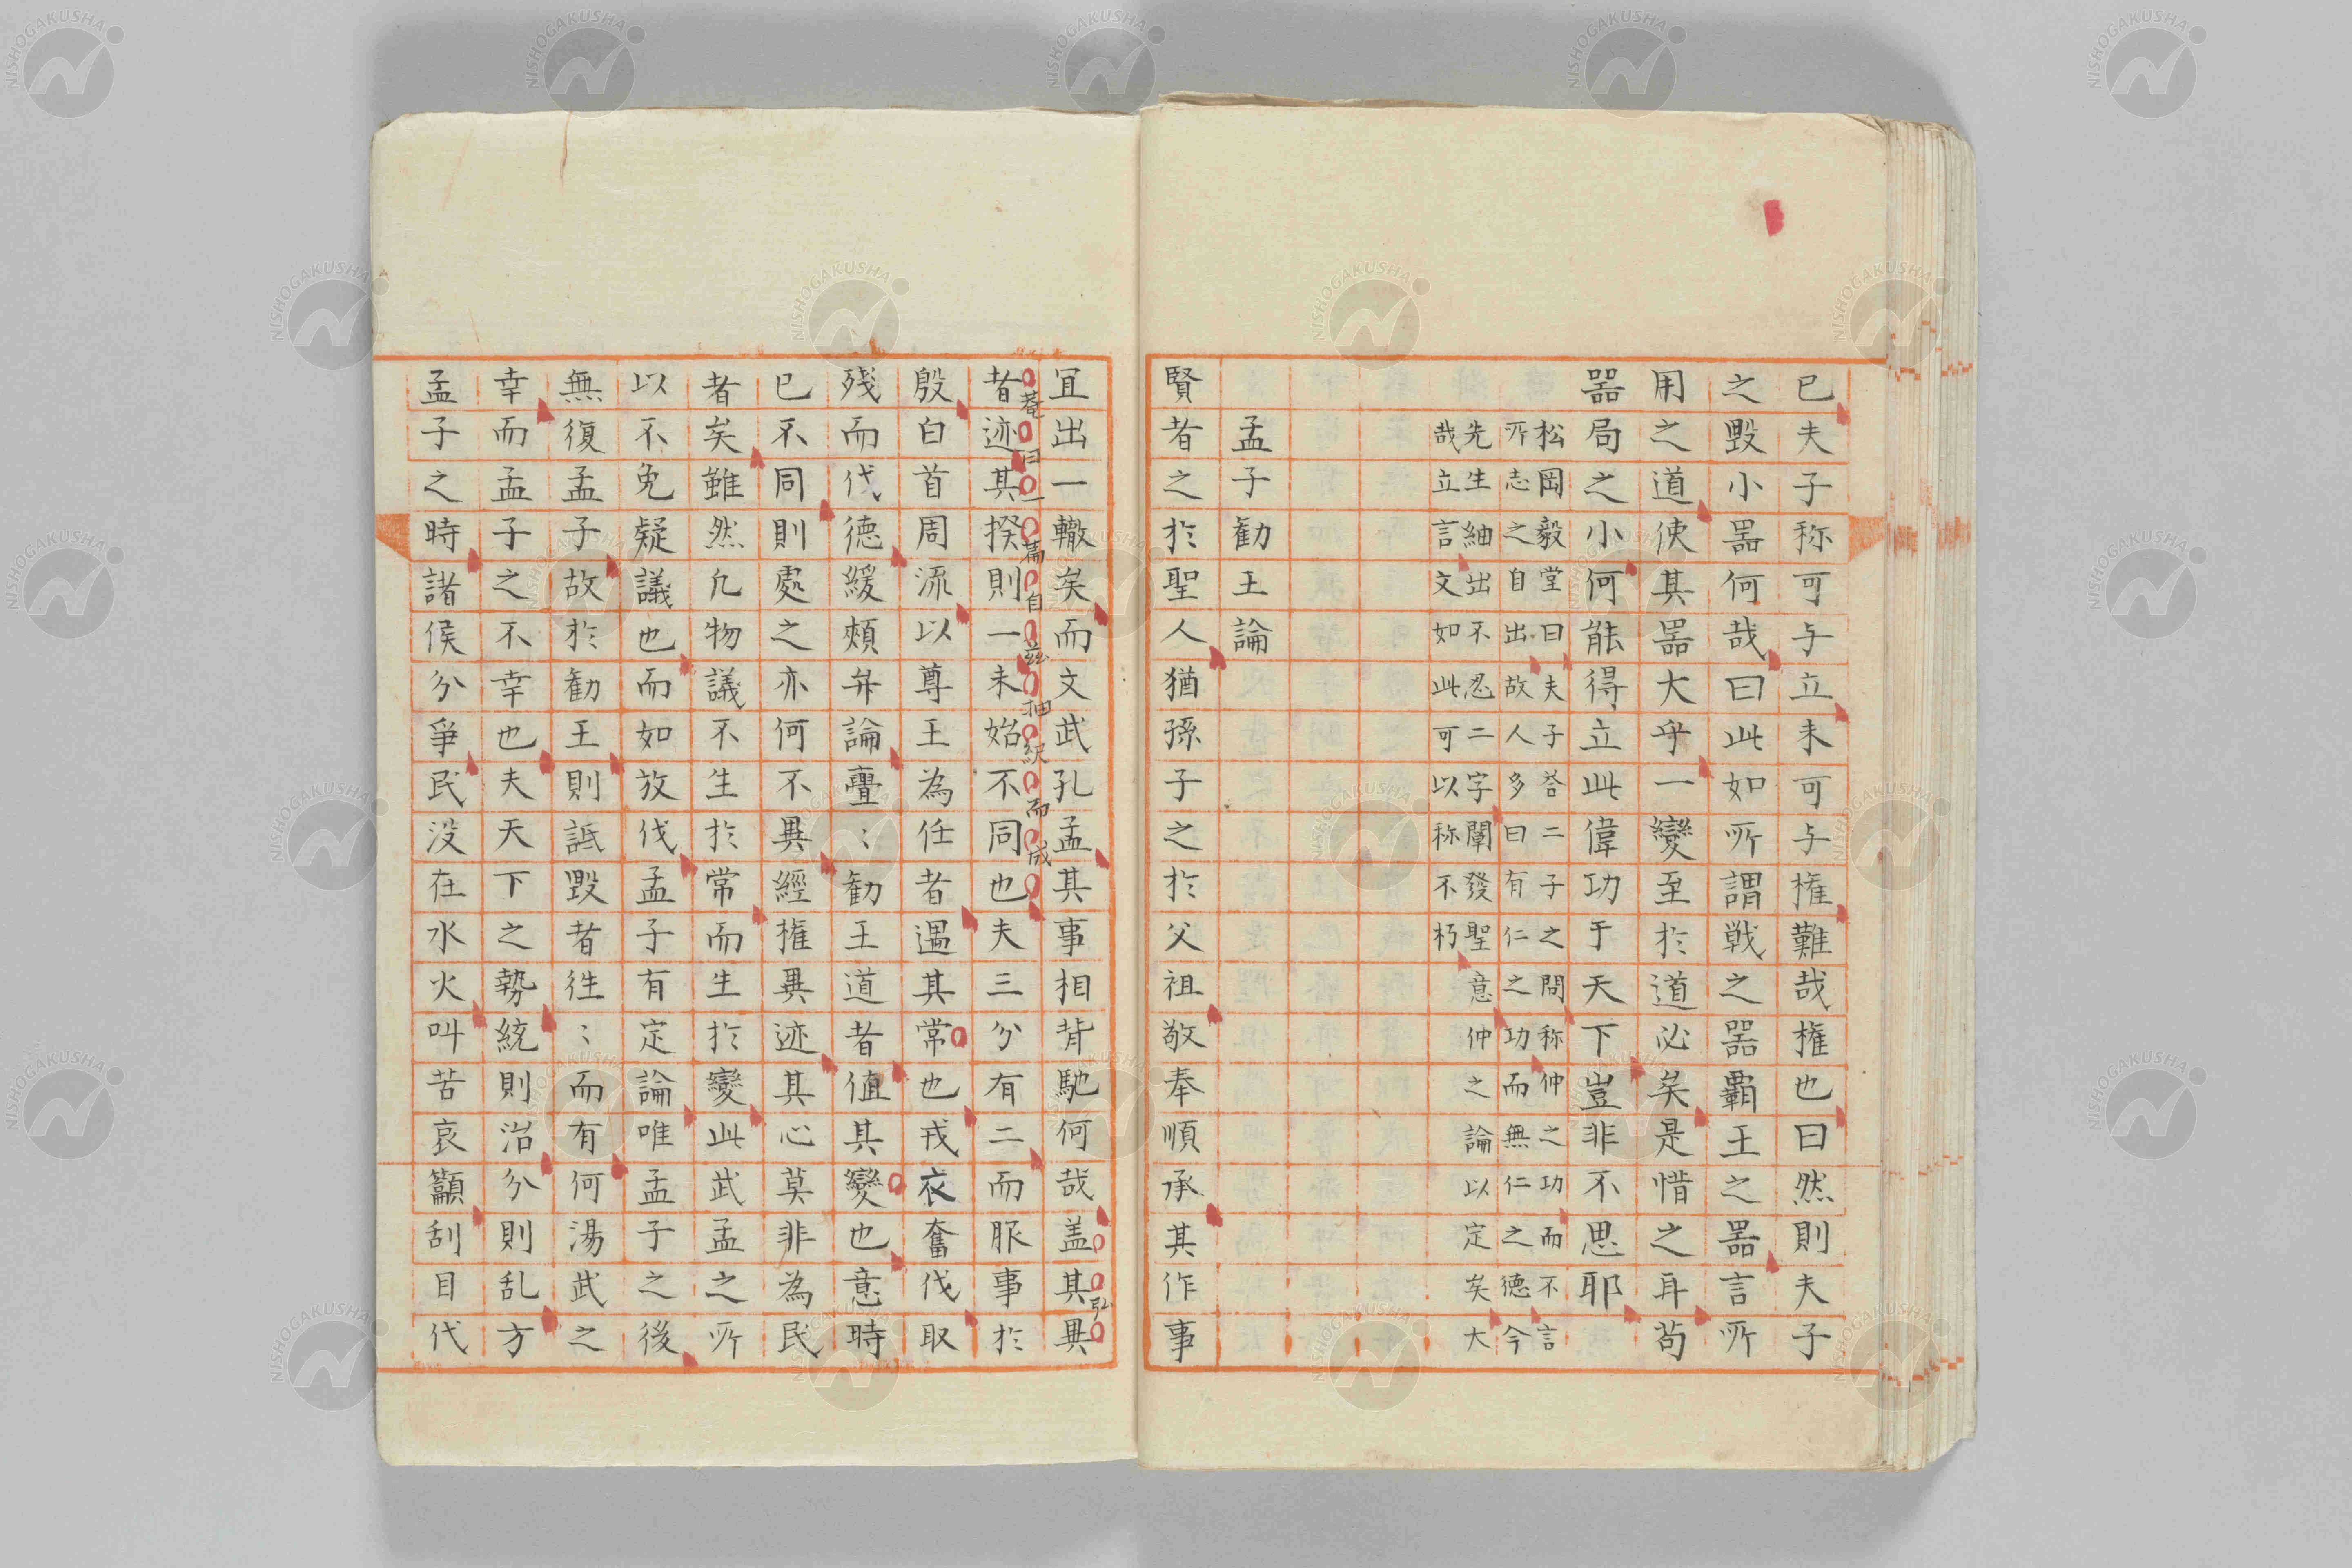 已夫子称可与立未可与権難哉権也曰然則夫子
之毀小噐何哉曰此如所謂戦之噐覇王之噐言所
用之道使其噐大乎一變至於道必矣是惜之耳苟
噐局之小何能得立此偉功于天下豈非不思耶
松岡毅堂曰夫子答二子之問称仲之功而不言
所志之自出故人多曰有仁之功而無仁之德今
先生紬出不忍二字闡發聖意仲之論以定矣大
哉立言文如此可以称不朽
孟子勧王論
賢者之於聖人猶孫子之於父祖敬奉順承其作事
宜出一轍矣而文武孔孟其事相背馳何哉盖其異
弘菴曰一篇自茲抽繹而成
者迹其揆則一未始不同也夫三分有二而服事於
殷白首周流以尊王為任者遇其常也戎衣奮伐取
残而伐德緩頬弁論亹〻勧王道者値其變也意時
已不同則處之亦何不異經権異迹其心莫非為民
者矣雖然凢物議不生於常而生於變此武孟之所
以不免疑議也而如放伐孟子有定論唯孟子之後
無復孟子故於勧王則詆毀者徃〻而有何湯武之
幸而孟子之不幸也夫天下之勢統則治分則乱方
孟子之時諸侯分爭民没在水火叫苦哀籲刮目代
NISHOGAKUSHA